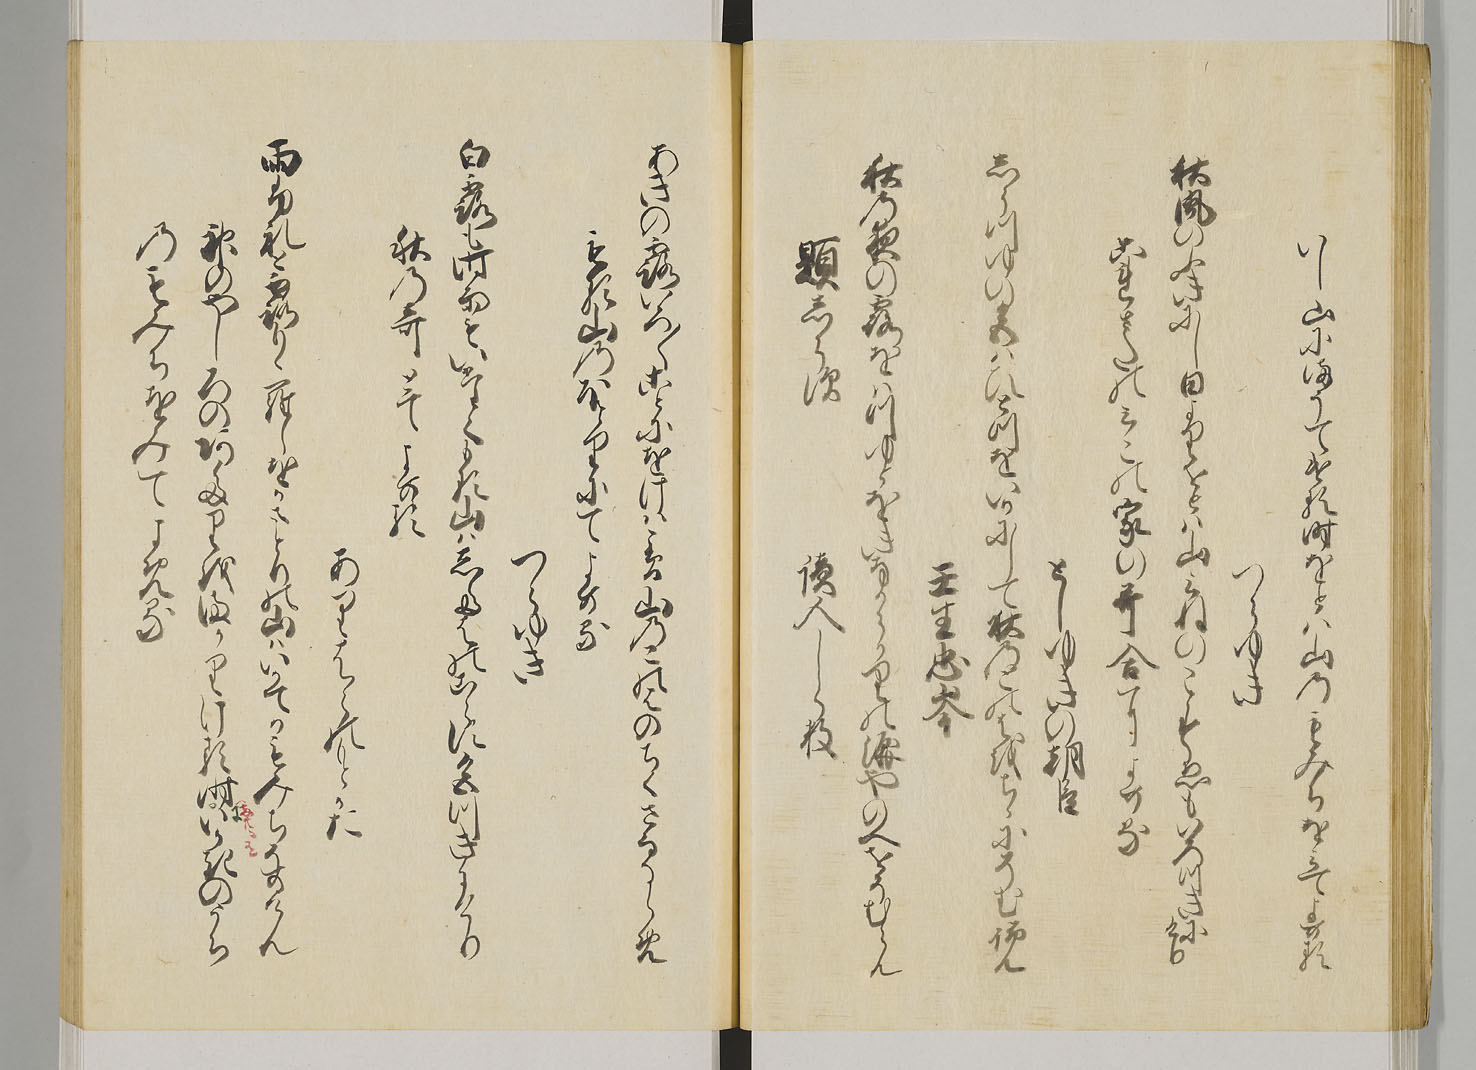 いし山にまうてける時をとは山のもみちをみてよめる
つらゆき
秋風のふきにし日よりをとは山みねのこすゑもいろつきにけり
これさたのみこの家の哥合によめる
としゆきの朝臣
しらつゆの色はひとつをいかにして秋のこのはをちゝにそむ覧
壬生忠岑
秋の夜の露をはつゆとをきなからかりの涙やのへをそむらん
題しらす
読人しらす
あきの露いろ/\ことにをけはこそ山のこのはのちくさなるらめ
もる山のほとりにてよめる
つらゆき
白露も時雨もいたくもる山はしたはのこらす色つきにけり
秋の哥とてよめる
ありはらのもとかた
雨ふれと露もゝらしをかさとりの山はいかてかもみちそめけん
神のやしろのあたりをまかりける時にいかきのうち
のもみちをみてよめる